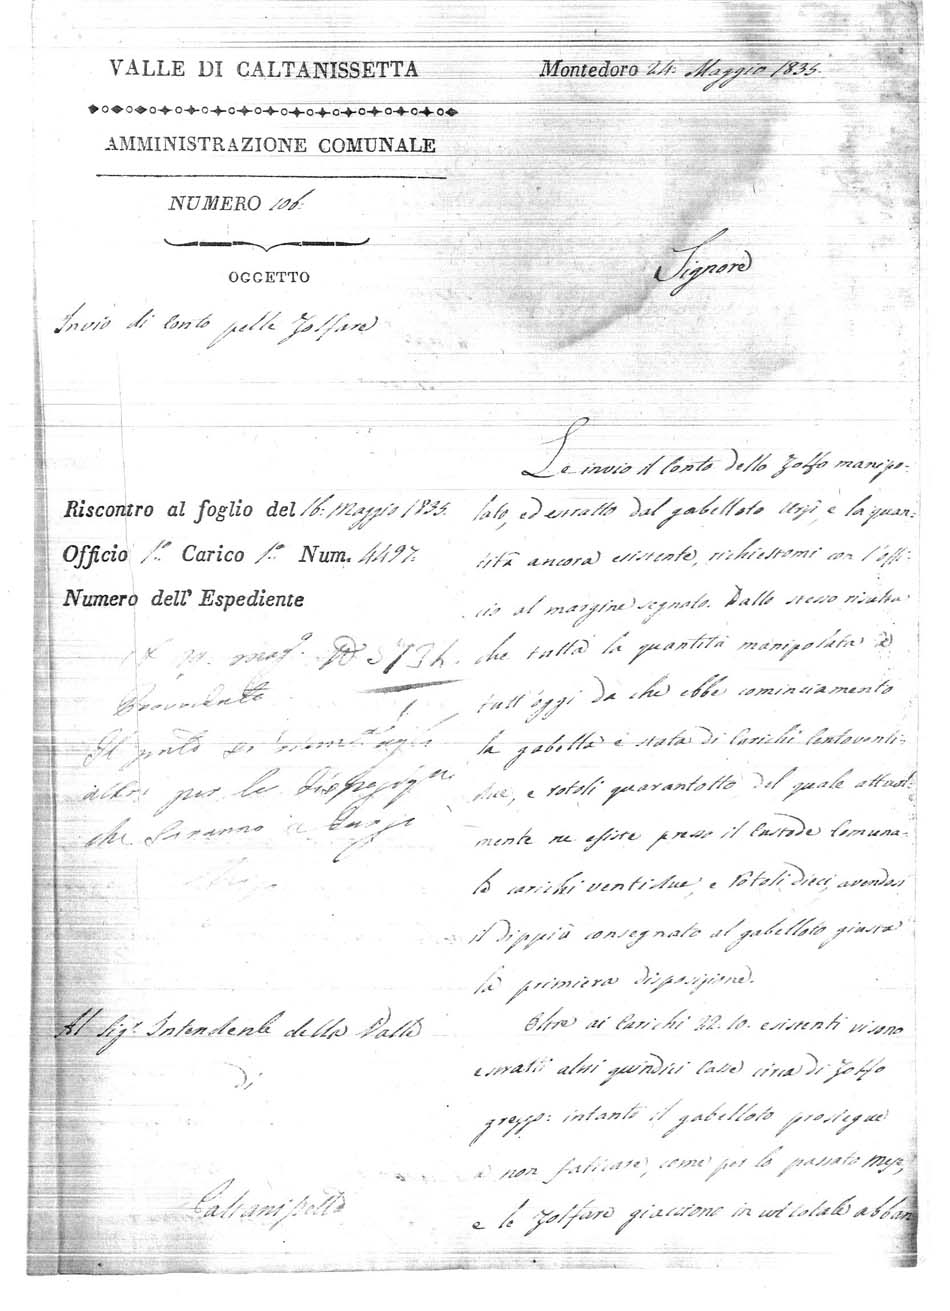 VALLE DI CALTANISSETTA
AMMINISTRAZIONE COMUNALE
NUMERO 106.
OGGETTO
Invio di Conto pelle Zolfare
Montedoro 24. Maggio 1835.
Signore
Riscontro al foglio del 16. Maggio 1835.
Officio 1.o Carico 1.o Num. 4497.
Numero dell' Espediente
che saranno
Al Sig.r Intendente della Valle
di
Caltanissetta
Le invio il Conto dello Zolfo manipo-
lato, ed estratto dal gabelloto e la quan-
tità ancora esistente, richiestomi con l'offi-
cio al margine segnato. Dallo stesso risulta
che tutta la quantità manipolata a
tutt'oggi da che ebbe cominciamento
la gabella è stata di Carichi Centoventi-
due, e rotoli quarantotto del quale attual-
mente ne esiste presso il Custode Comuna-
le carichi ventidue, e Rotoli dieci, avendosi
il dippiù consegnato al gabelloto giusta
la primiera disposizione.
Oltre ai Carichi 22. 10. esistenti vi sono
estratti altri quindici Casse circa di Zolfo
intanto il gabelloto prosiegue
a non faticare, come per lo passato
e le Zolfare giacciono in un totale abban